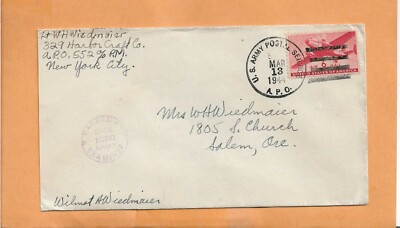 Lt WH Wiedmaier
329 Harbor Craft Co.
A.P.O. 552 % P.M.
New York City.
U.S. ARMY POSTAL SER
MAR
13
1944
A.P.O.
UNITED STATES OF AMERICA
Mrs WH Wiedmaier
1805 S. Church
Salem, Ore.
Wilmot H Wiedmaier